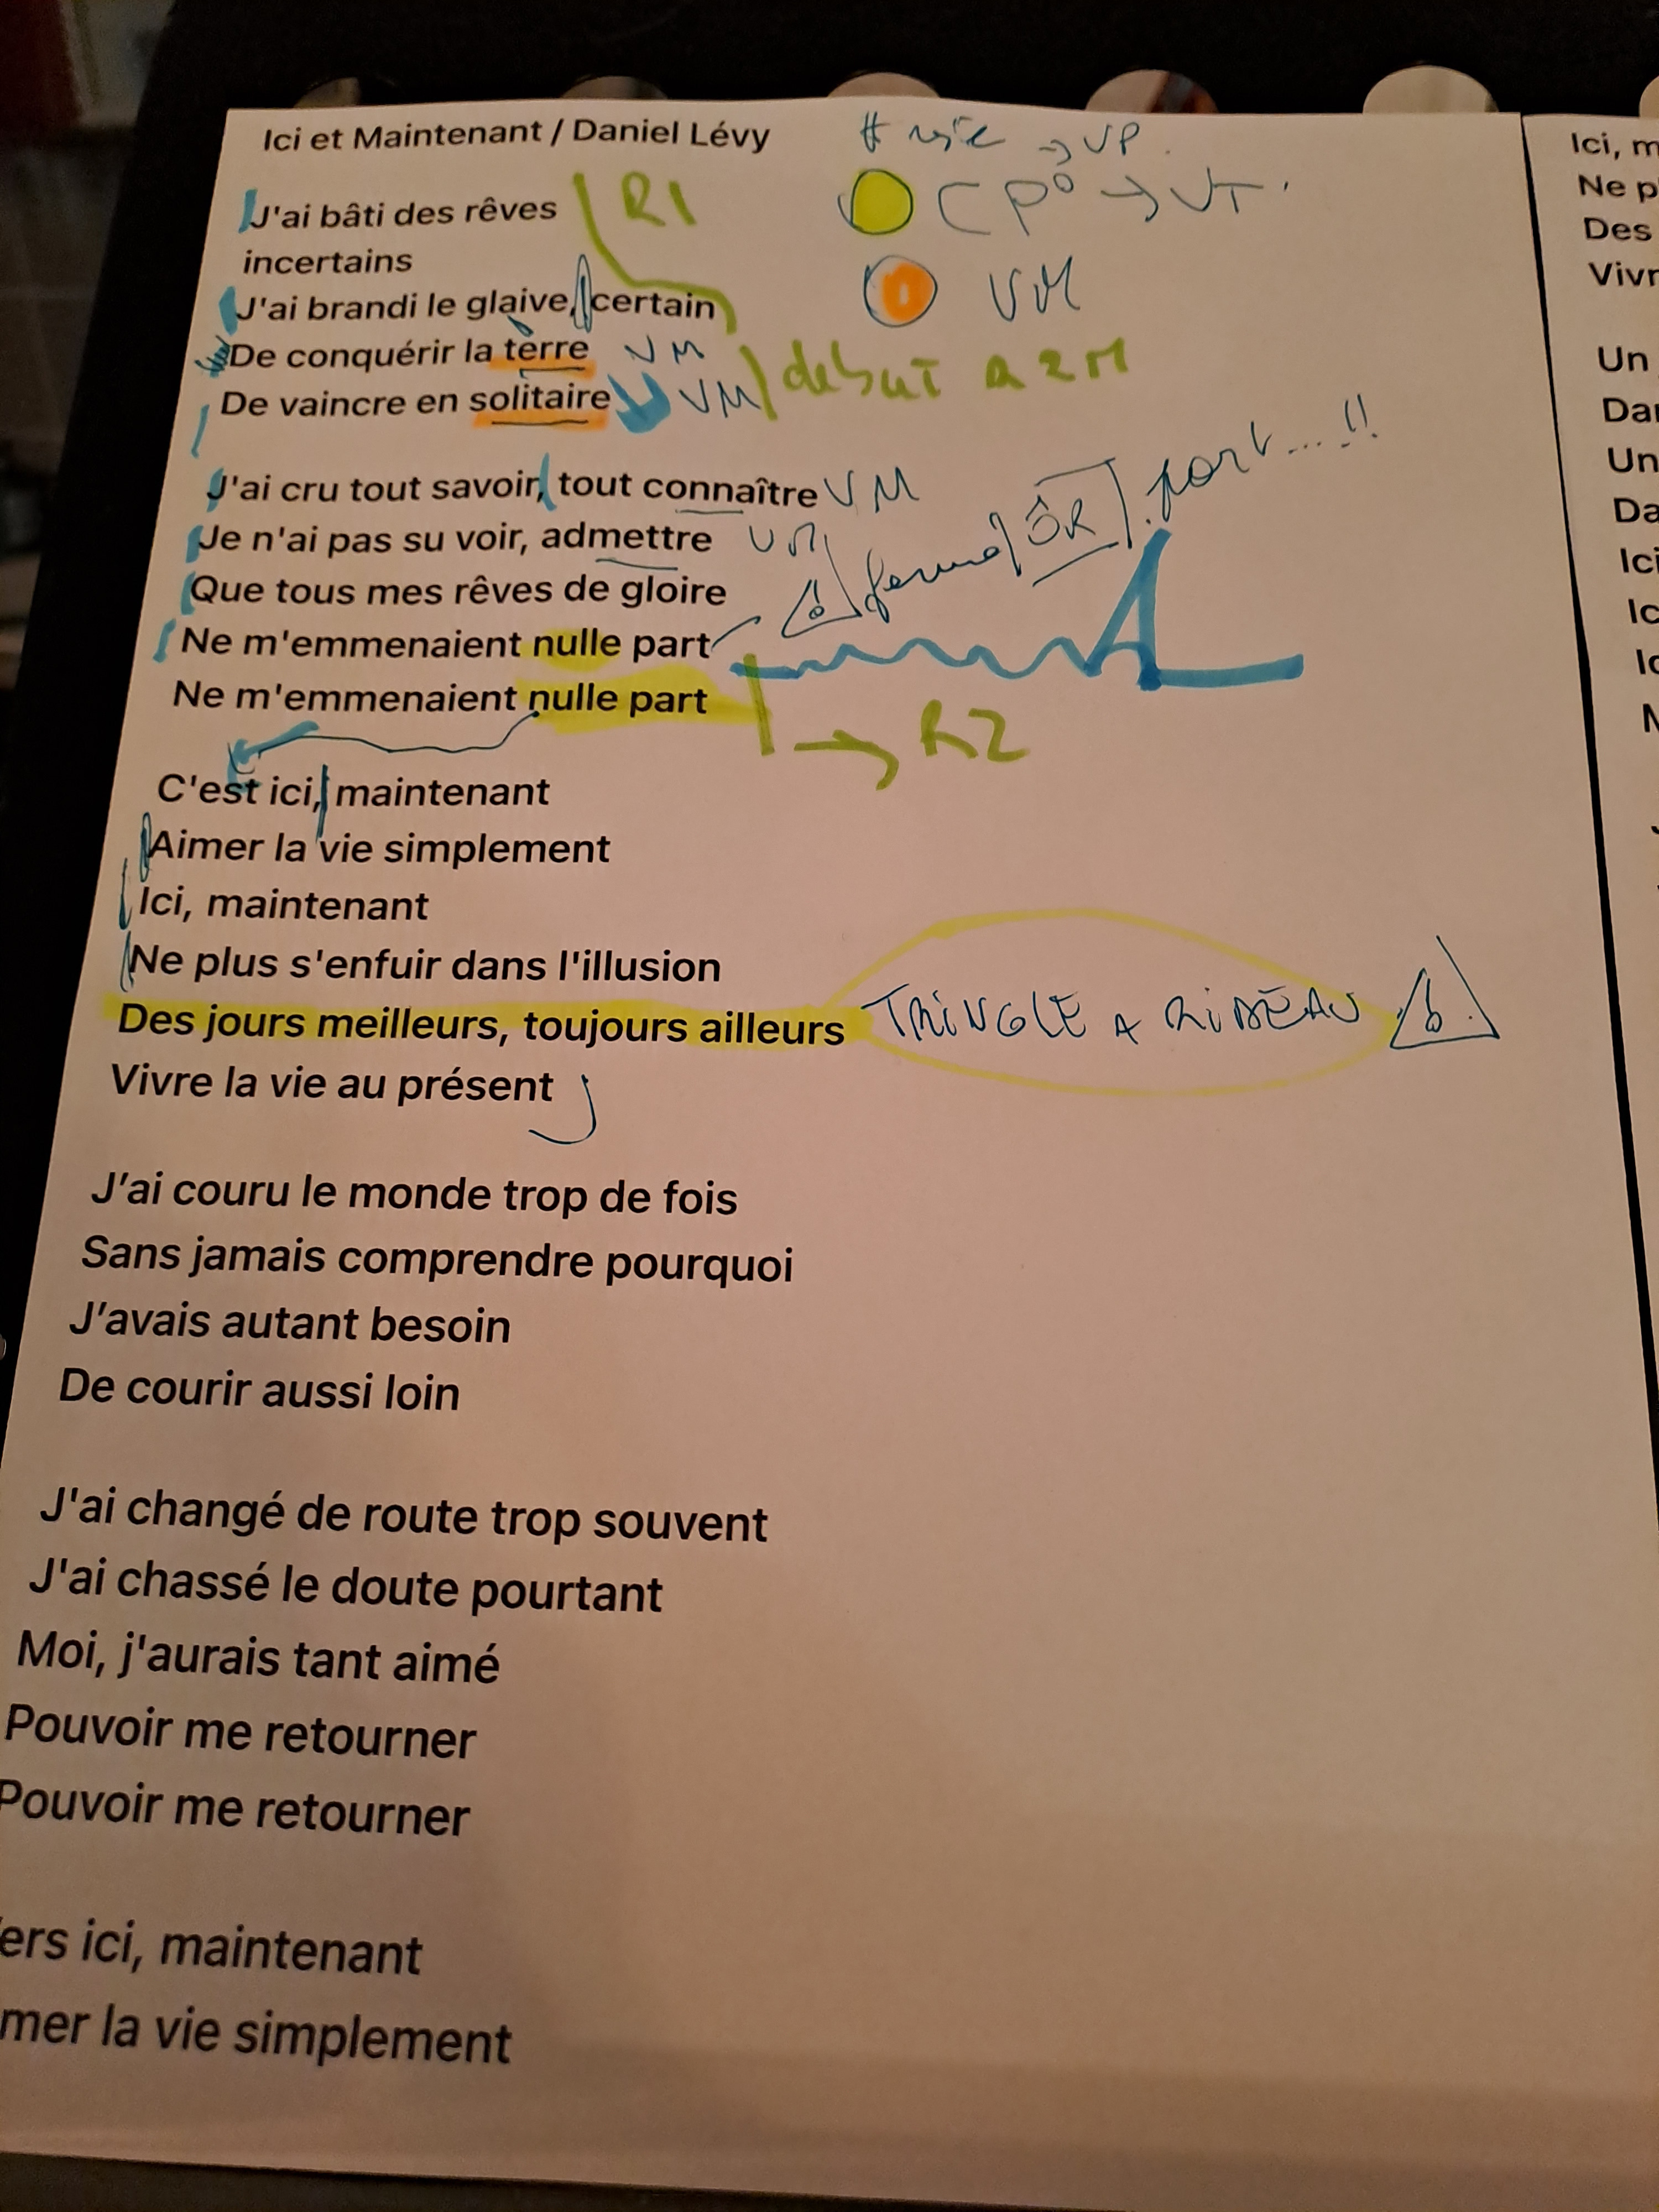 Ici et Maintenant / Daniel Lévy
→ VP.
J'ai bâti des rêves
R1
CP° → VT.
incertains
J'ai brandi le glaive, certain
VM
De conquérir la terre VM
début à 2M
De vaincre en solitaire VM
J'ai cru tout savoir, tout connaître VM
Je n'ai pas su voir, admettre VM
Que tous mes rêves de gloire
! fermé ÔR part....!!
Ne m'emmenaient nulle part
Ne m'emmenaient nulle part
→ R2
C'est ici, maintenant
Aimer la vie simplement
Ici, maintenant
Ne plus s'enfuir dans l'illusion
Des jours meilleurs, toujours ailleurs TRINGLE A RIDEAU !
Vivre la vie au présent
J'ai couru le monde trop de fois
Sans jamais comprendre pourquoi
J'avais autant besoin
De courir aussi loin
J'ai changé de route trop souvent
J'ai chassé le doute pourtant
Moi, j'aurais tant aimé
Pouvoir me retourner
Pouvoir me retourner
ers ici, maintenant
mer la vie simplement
Ici, m
Ne p
Des
Vivr
Un
Dan
Un
Da
Ici
Ic